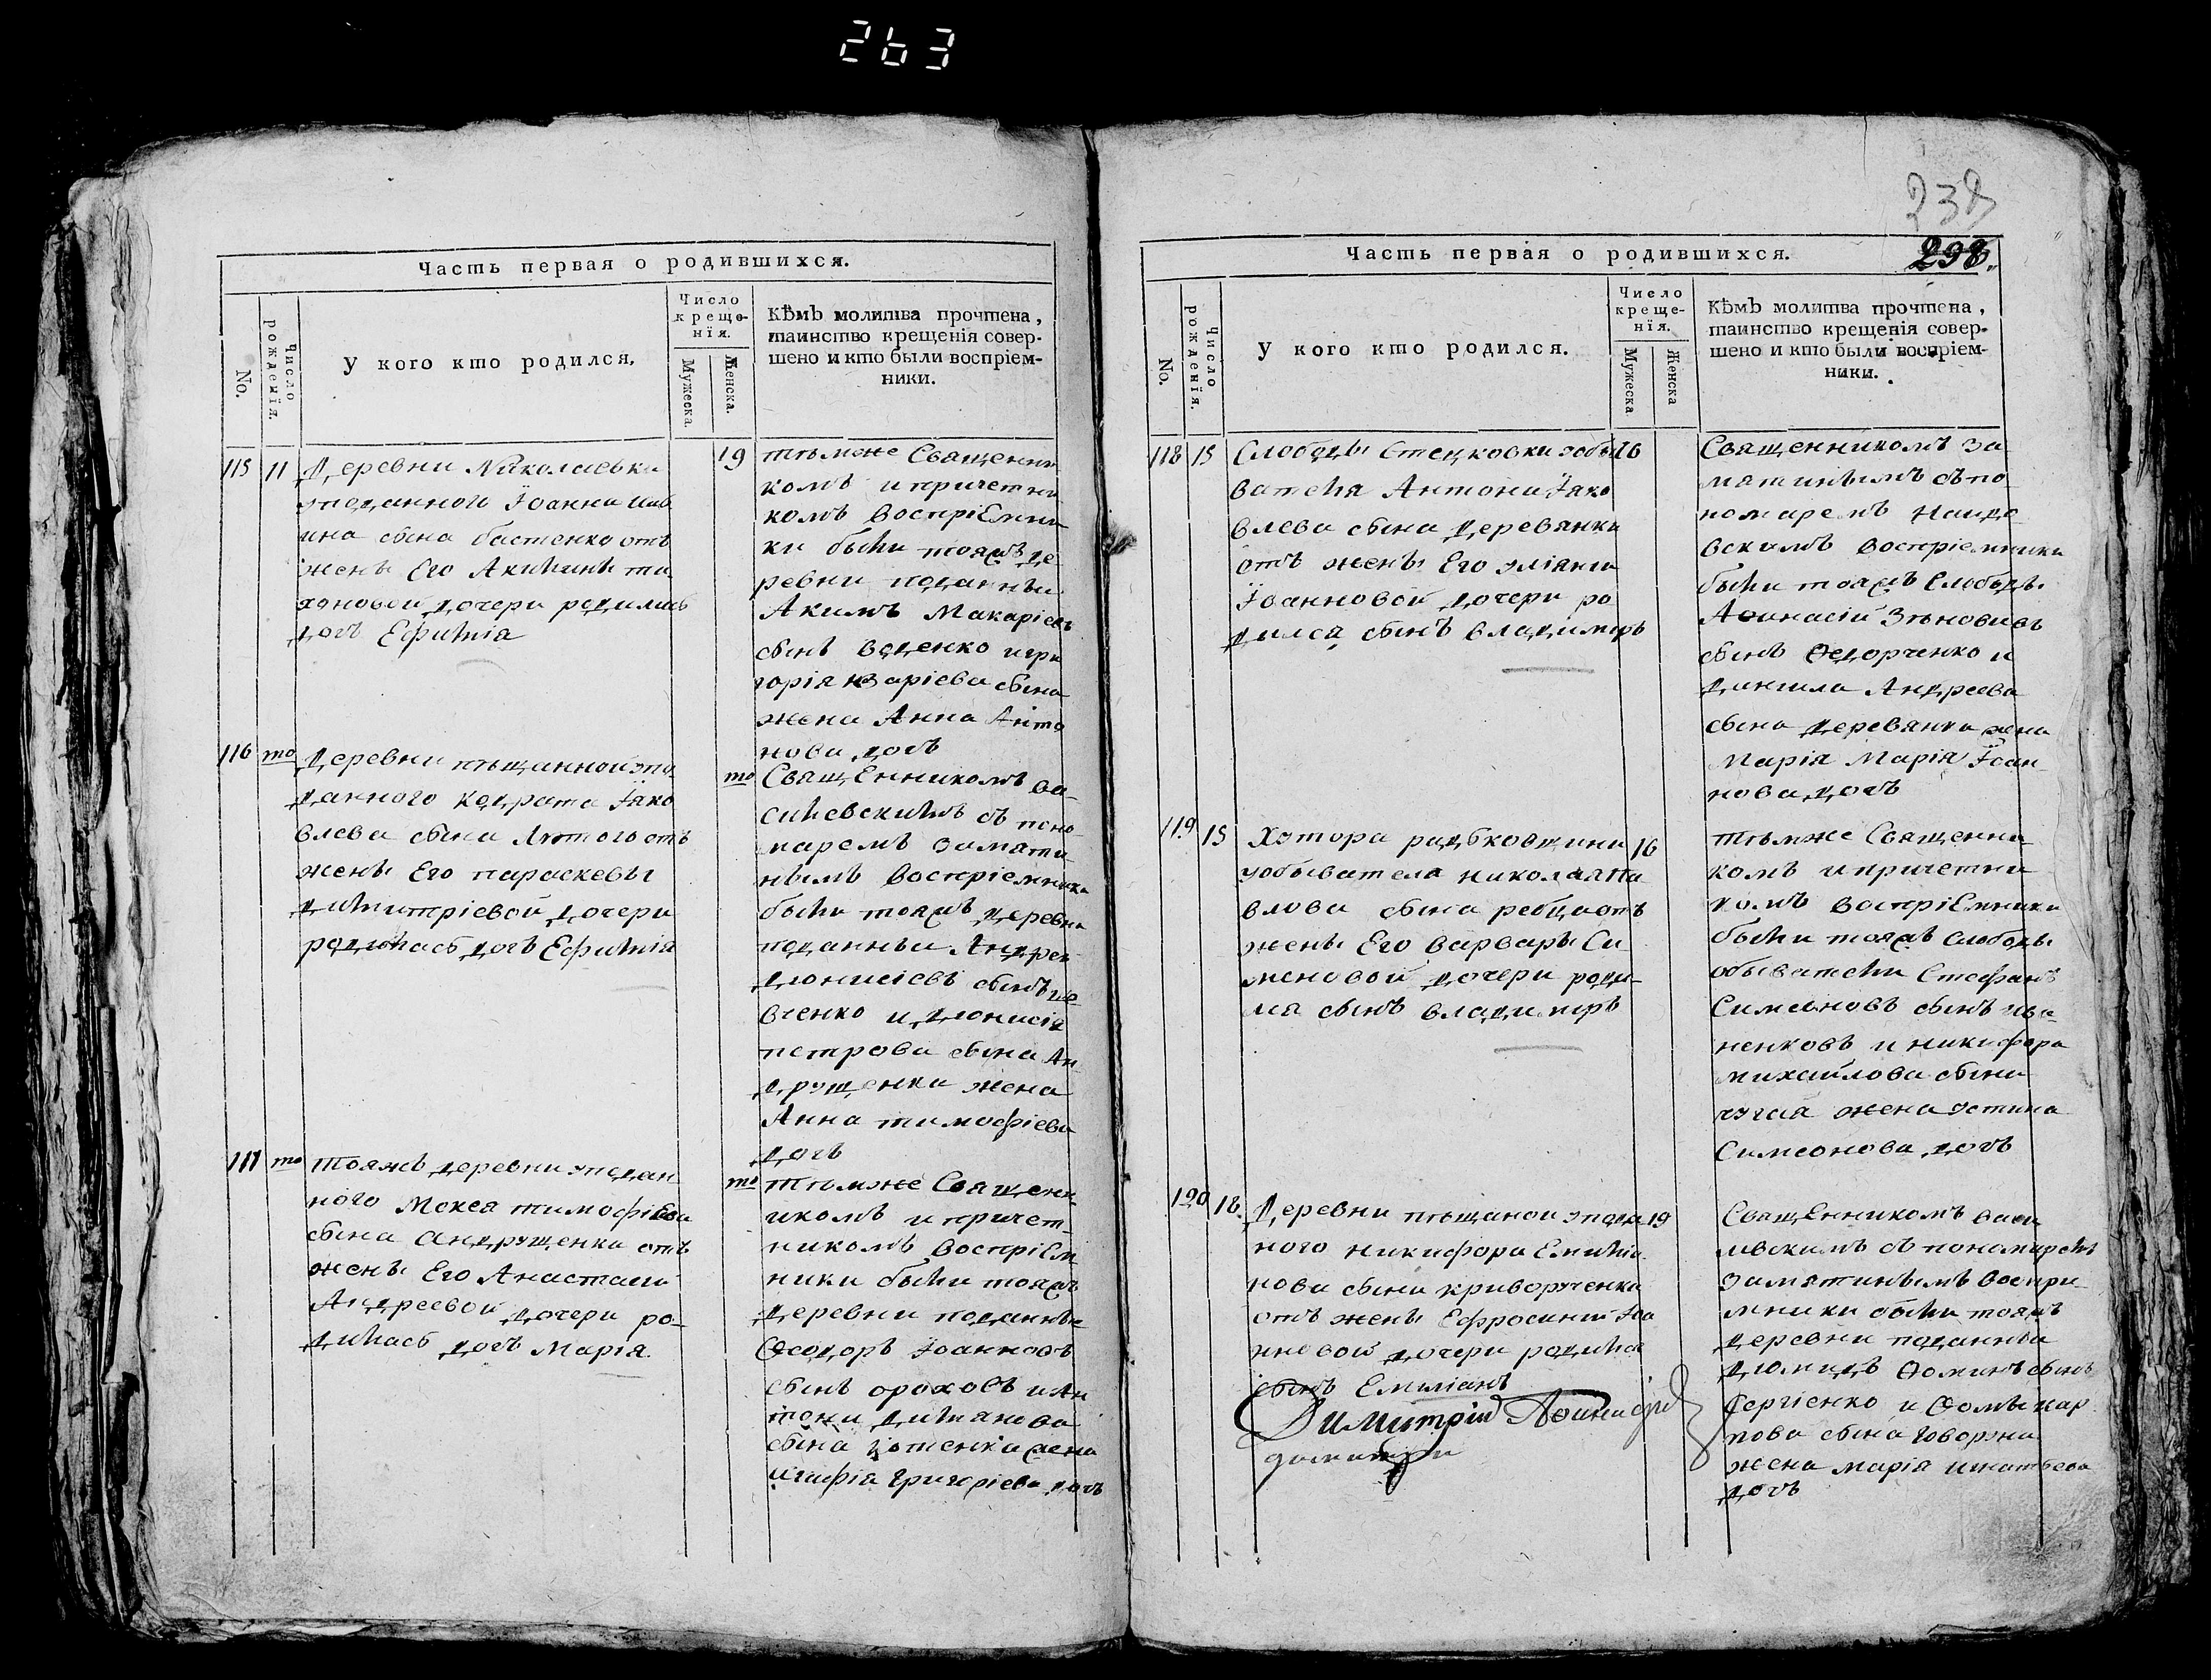 263
Часть первая о родившихся.
No.
Число рожденїя.
У кого кто родился.
Число
креще-
нїя.
Мужеска.
Женска.
Кѣмъ молитва прочтена,
таинство крещенія совер-
шено и кто были воспріем-
ники.
115 11 Деревни Николаевки
уподанного Їоанна
сына бастенко отъ
жены Его Акилины ти
хоновой дочери родилась
дочь Ефимія
19
тѣмже Священни
комъ и причетни
комъ воспріЕмни
ки были тояжъ де
ревни поданныи
Акимъ Макаріевъ
сынъ воденко и гри
горія Назаріева сына
жена Анна Анто
нова дочь
116 то Деревни пѣщанной упо
данного кодрата Їяко
влева сына Лютого отъ
жены Его параскевы
димитріевой дочери
родилась дочь Ефимія
то
СвящЕнникомъ ва-
силевскимъ съ поно
маремъ замяти
нымъ воспріемники
были тояжъ деревни
поданныи Андрей
дионисіевъ сынъ
вченко и дионисія
петрова сына Ан
друщенка жена
Анна тимофіева
дочь
117 то тояжъ деревни уподан
ного Мокея тимофіева
сына андрущенка отъ
жены Его Анастасіи
Андреевой дочери ро-
дилась дочь Марія.
то
тѣмже Священ
икомъ и причет-
никомъ воспріЕм
ники были тояжъ
деревни поданныи
Ѳеодоръ Їоанновъ
сынъ ороховъ и Ан
тона димянова
сына котенка жена
агафія григоріева дочь
238
298.
Часть первая о родившихся.
No.
Число рожденїя.
У кого кто родился.
Число
креще-
нїя.
Мужеска
Женска
Кѣмъ молитва прочтена,
таинство крещенія совер-
шено и кто были воспріем-
ники.
118 15 Слободы Стецковки уобы 16
вателя Антона Їяко
влева сына деревянки
отъ жены Его уліяни
Їоанновой дочери ро
дился сынъ владимиръ
Священникомъ за
мятинымъ съ по
номаремъ наидо
вскимъ воспріемники
были тояжъ Слободы
Аѳанасій Зѣновіевъ
сынъ Ѳедорченко и
данила Андреева
сына деревянки жена
Марія Марія Їоан-
нова дочь
119 15 Хутора рябковщини 16
уобывателя николая Па
влова сына ребца отъ
жены Его варвары Си
меновой дочери роди-
ля сынъ владимиръ
тѣмже Священни
комъ и причетни
комъ воспріЕмники
были тояжъ слободы
обыватели Стефанъ
Симеоновъ сынъ ива-
ненковъ и никифора
михайлова сына
чугая жена устина
Симеонова дочь
120 18. Деревни пѣщаной упода 19
ного никифора Емилія
нова сына криворученка
отъ жены Ефросиніи Їоа
нновой дочери родился
сынъ Емиліанъ
СвящЕнникомъ васи
левскимъ съ пономаремъ
замятинымъ воспріе
мники были тояжъ
деревни поданныи
диомидъ Ѳоминъ сынъ
сергіенко и Ѳомы кар
пова сына говоруна
жена марія игнатьева
дочь
Димитрій